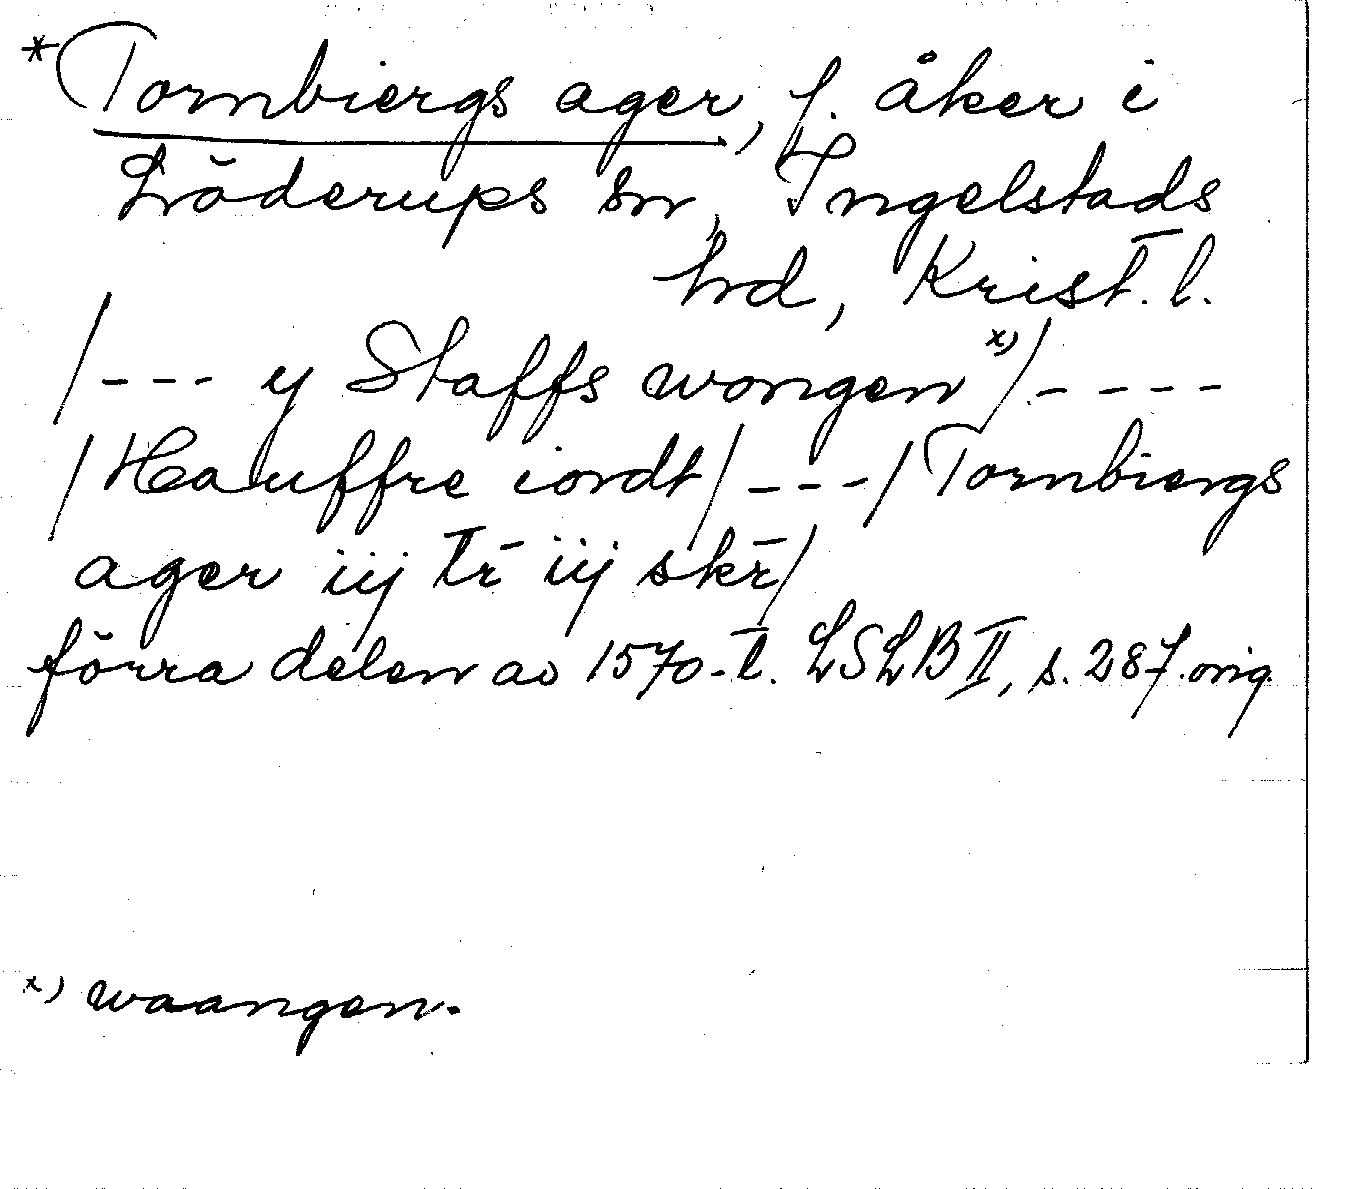 *Tornbiergs ager, f. åker i
Löderups sn, Ingelstads
hd, Krist. l.
/--- y Staffs wongen x)/----
/Hauffre iordt/---/Tornbiergs
ager iij tr̄ iij skr̄/
förra delen av 1570-t. LSLB II, s. 287. orig.
x) waangen.